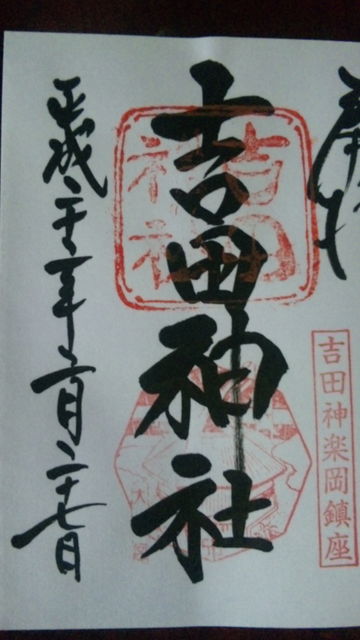 奉拝
吉田神楽岡鎮座
吉田神社
吉田
神社
平成二十二年二月二十七日